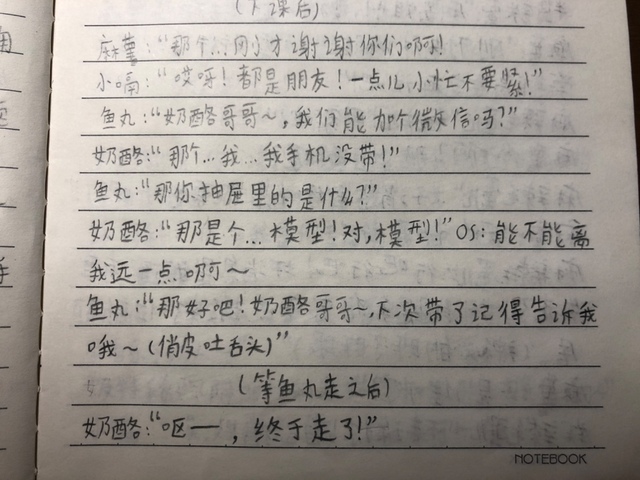 (下课后)
麻薯：“那个…刚才谢谢你们啊!
小嗝：“哎呀！都是朋友！一点儿小忙不要紧!”
鱼丸：“奶酪哥哥~，我们能加个微信吗?”
奶酪：“那个…我…我手机没带!”
鱼丸：“那你抽屉里的是什么?”
奶酪：“那是个…模型！对，模型!” OS：能不能离
我远一点啊~
鱼丸：“那好吧！奶酪哥哥~，下次带了记得告诉我
哦~(俏皮吐舌头)”
(等鱼丸走之后)
奶酪：“呕一一，终于走了!”
NOTEBOOK